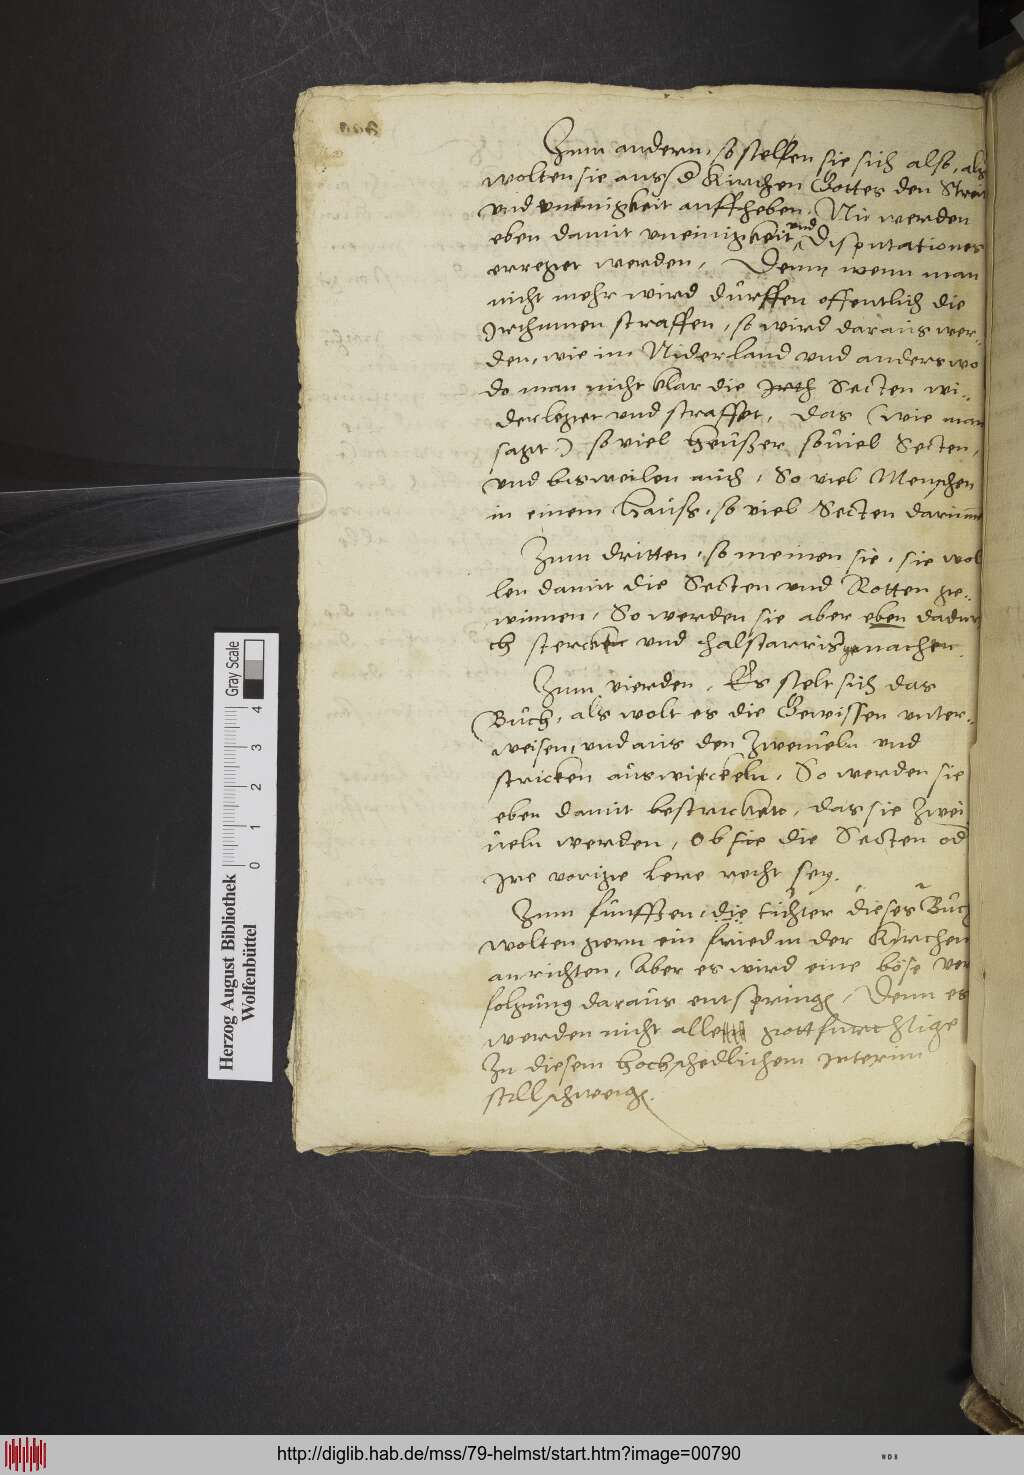 Zum andern, so stellen sie sich also, als
wolten sie auss d Kirchen Gottes den Streit
vnd vneinigkeit auffheben. Nu werden
eben damit vneinigkeit vnd Disputationes
erreget werden, Denn wenn man
nicht mehr wird dürffen offentlich die
Irthumen straffen, so wird daraus wer-
den, wie im Niderland vnd anderswo
do man nicht klar die Irth Secten wi-
derleget vnd straffet, das (wie man
sagt) so viel heuszer souiel Secten,
vnd bisweilen auch, So viel Menschen
in einem hauss, so viel Secten darinne
Zum dritten, so meinen sie, sie wol
len damit die Secten vnd Rotten ge-
winnen, So werden sie aber eben dadur
ch stercken vnd halstarrig machen.
Zum vierden, Es stelt sich das
Buch, als wolt es die Gewissen vnter-
weisen, vnd aus den Zweiueln vnd
stricken auswickeln, So werden sie
eben damit bestricket, das sie Zwei
ueln werden, Ob sie die Secten od
ire vorige Lere recht sey.
Zum fünfften, die tichter dieses Buch
wolten gern ein fried in der Kirchen
anrichten, Aber es wird eine böse ver
folgung daraus entspringen, Denn es
werden nicht alle gottfurchtige
Zu diesem hochschedlichem Interim
stillschweigen.
Herzog August Bibliothek
Wolfenbüttel
0 1 2 3 4
Gray Scale
http://diglib.hab.de/mss/79-helmst/start.htm?image=00790